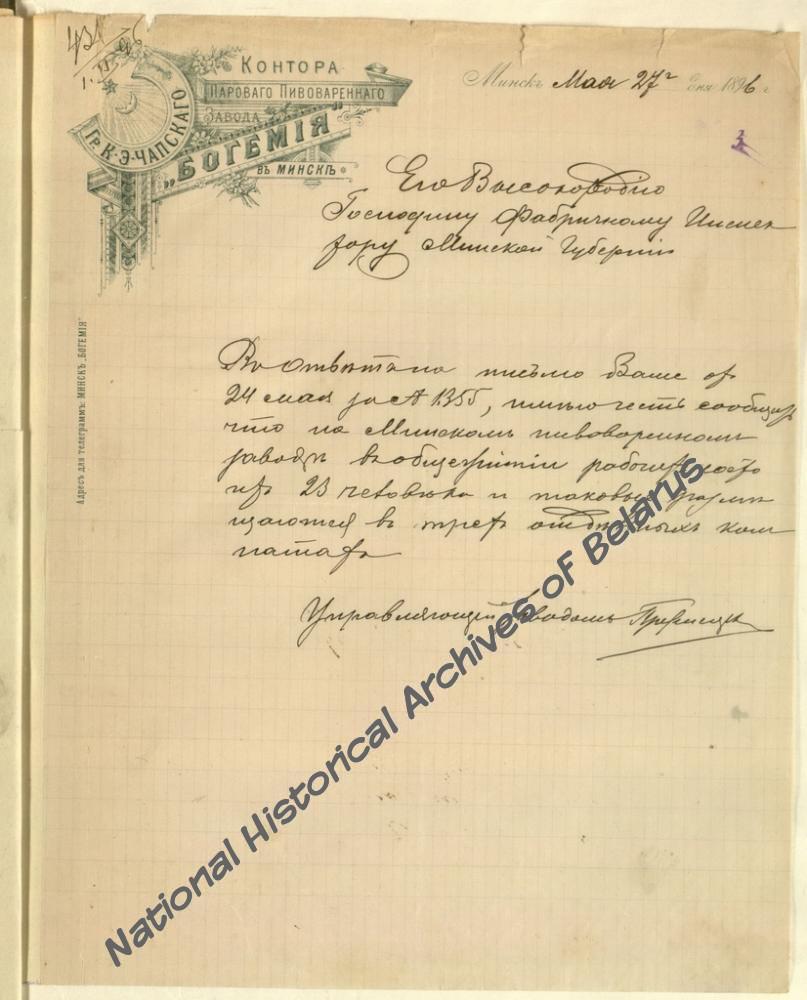 КОНТОРА
ПАРОВАГО ПИВОВАРЕННАГО
ЗАВОДА
ГР. К.Э. ЧАПСКАГО
„БОГЕМІЯ”
ВЪ МИНСКѢ
Минскъ Мая 27го дня 1896 г.
3
Его Высокородію
Господину Фабричному Инспек
тору Минской Губерніи
Адресъ для телеграммъ: МИНСКЪ „БОГЕМІЯ”
Въ Отвѣтъ на письмо Ваше отъ
24 мая за № 1355, имѣю честь сообщить
что на Минскомъ пивоваренномъ
заводѣ въ общежитіи рабочихъ
изъ 23 человѣка и таковые помѣ
щаются въ трехъ отдѣльныхъ ком
натахъ
Управляющій Заводомъ
National Historical Archives of Belarus